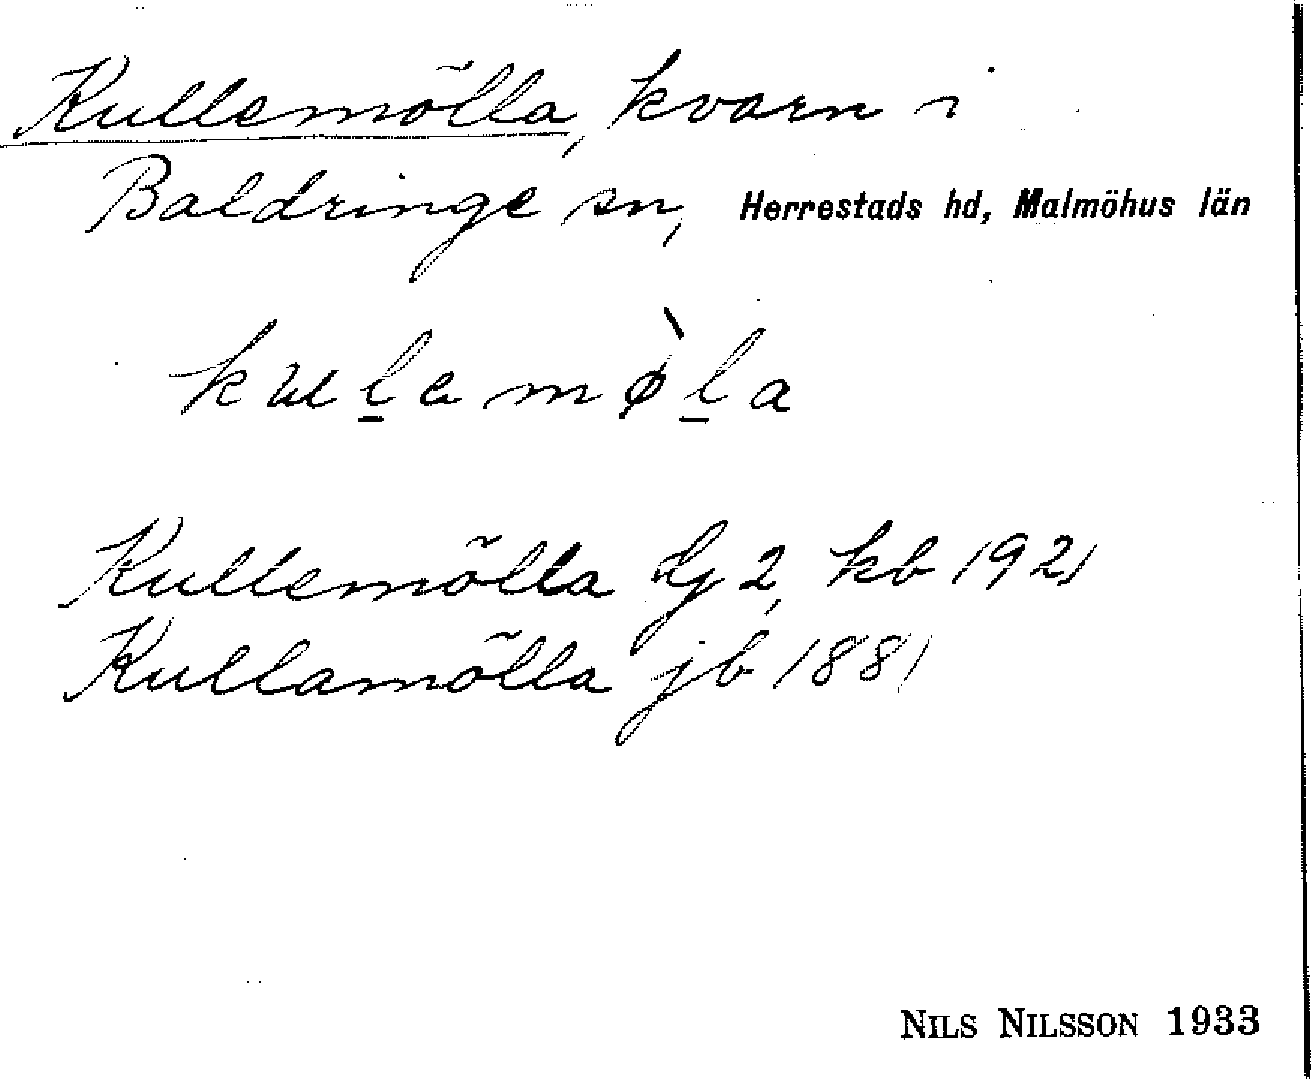 Kullemölla, kvarn i
Baldringe sn, Herrestads hd, Malmöhus län
kulemø̀la
Kullemölla hg 2, kb 1921
Kullamölla jb 1881
NILS NILSSON 1933